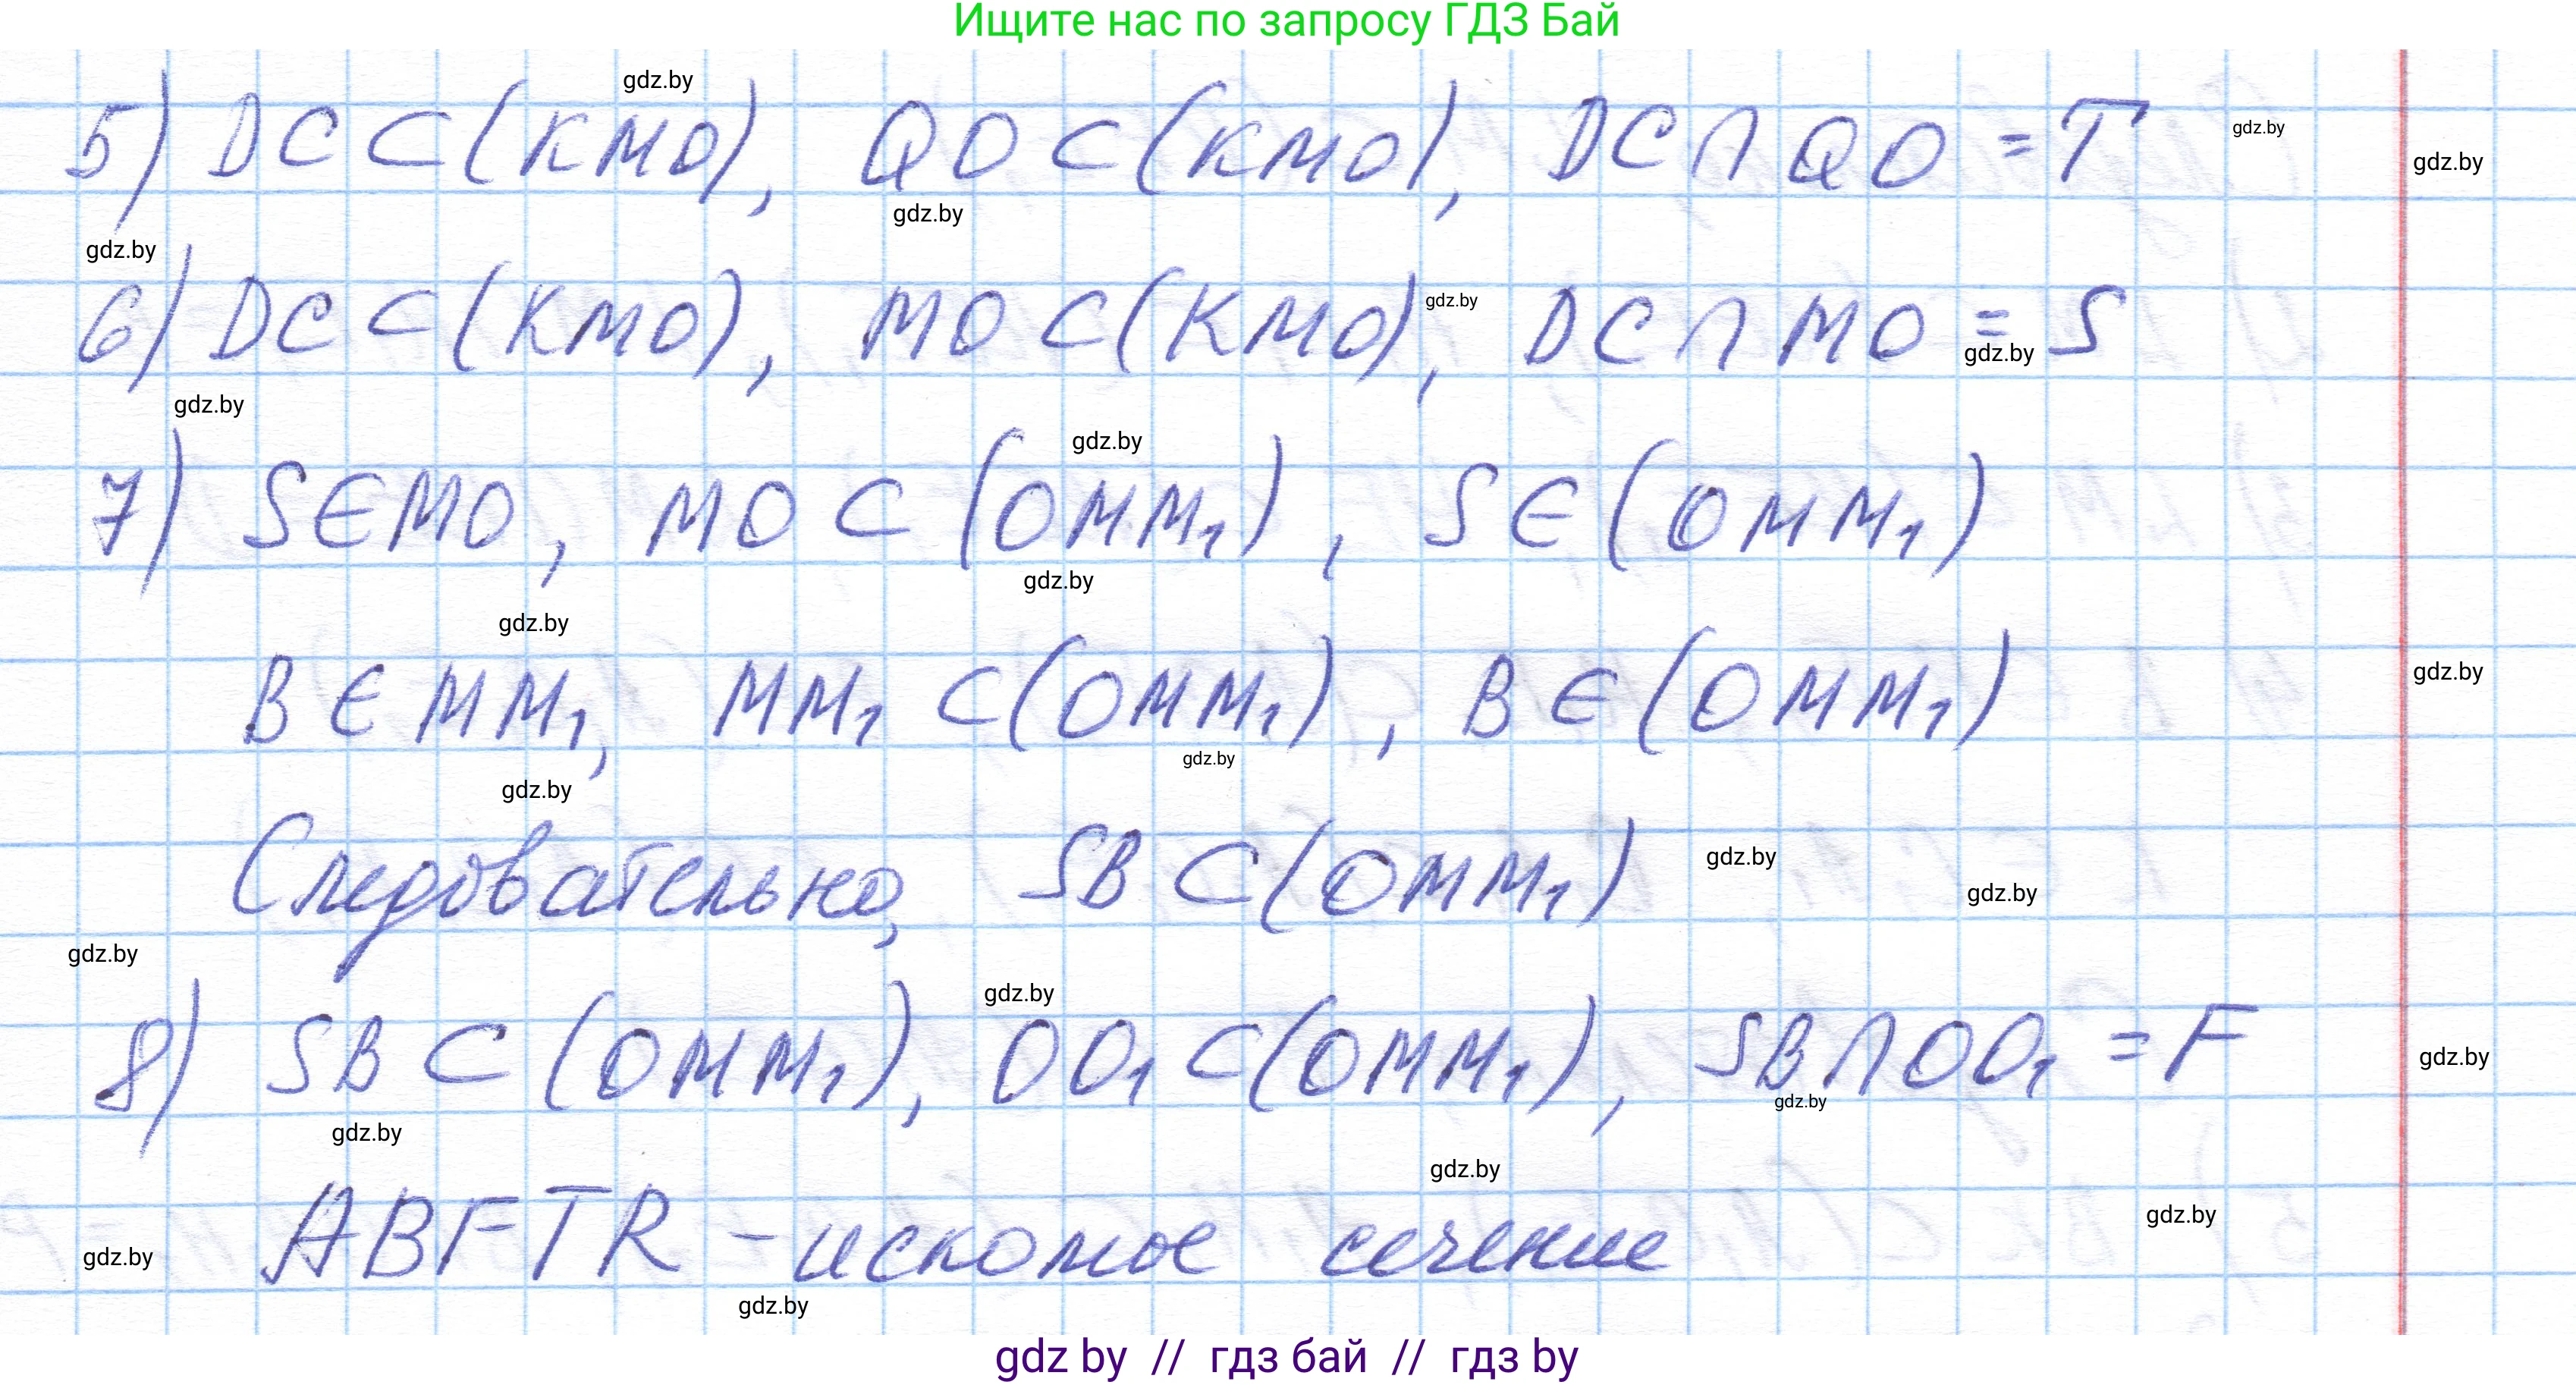 Ищите нас по запросу ГДЗ Бай
gdz.by
5) DC ⊂ (KMO), QO ⊂ (KMO), DC ∩ QO = T
gdz.by
gdz.by
gdz.by
gdz.by
6) DC ⊂ (KMO), MO ⊂ (KMO), DC ∩ MO = S
gdz.by
gdz.by
gdz.by
gdz.by
7) S ∈ MO, MO ⊂ (OMM₁), S ∈ (OMM₁)
gdz.by
gdz.by
B ∈ MM₁, MM₁ ⊂ (OMM₁), B ∈ (OMM₁)
gdz.by
gdz.by
gdz.by
Следовательно, SB ⊂ (OMM₁)
gdz.by
gdz.by
gdz.by
gdz.by
8) SB ⊂ (OMM₁), OO₁ ⊂ (OMM₁), SB ∩ OO₁ = F
gdz.by
gdz.by
gdz.by
gdz.by
ABFTR - искомое сечение
gdz.by
gdz.by
gdz.by
gdz by // гдз бай // гдз by